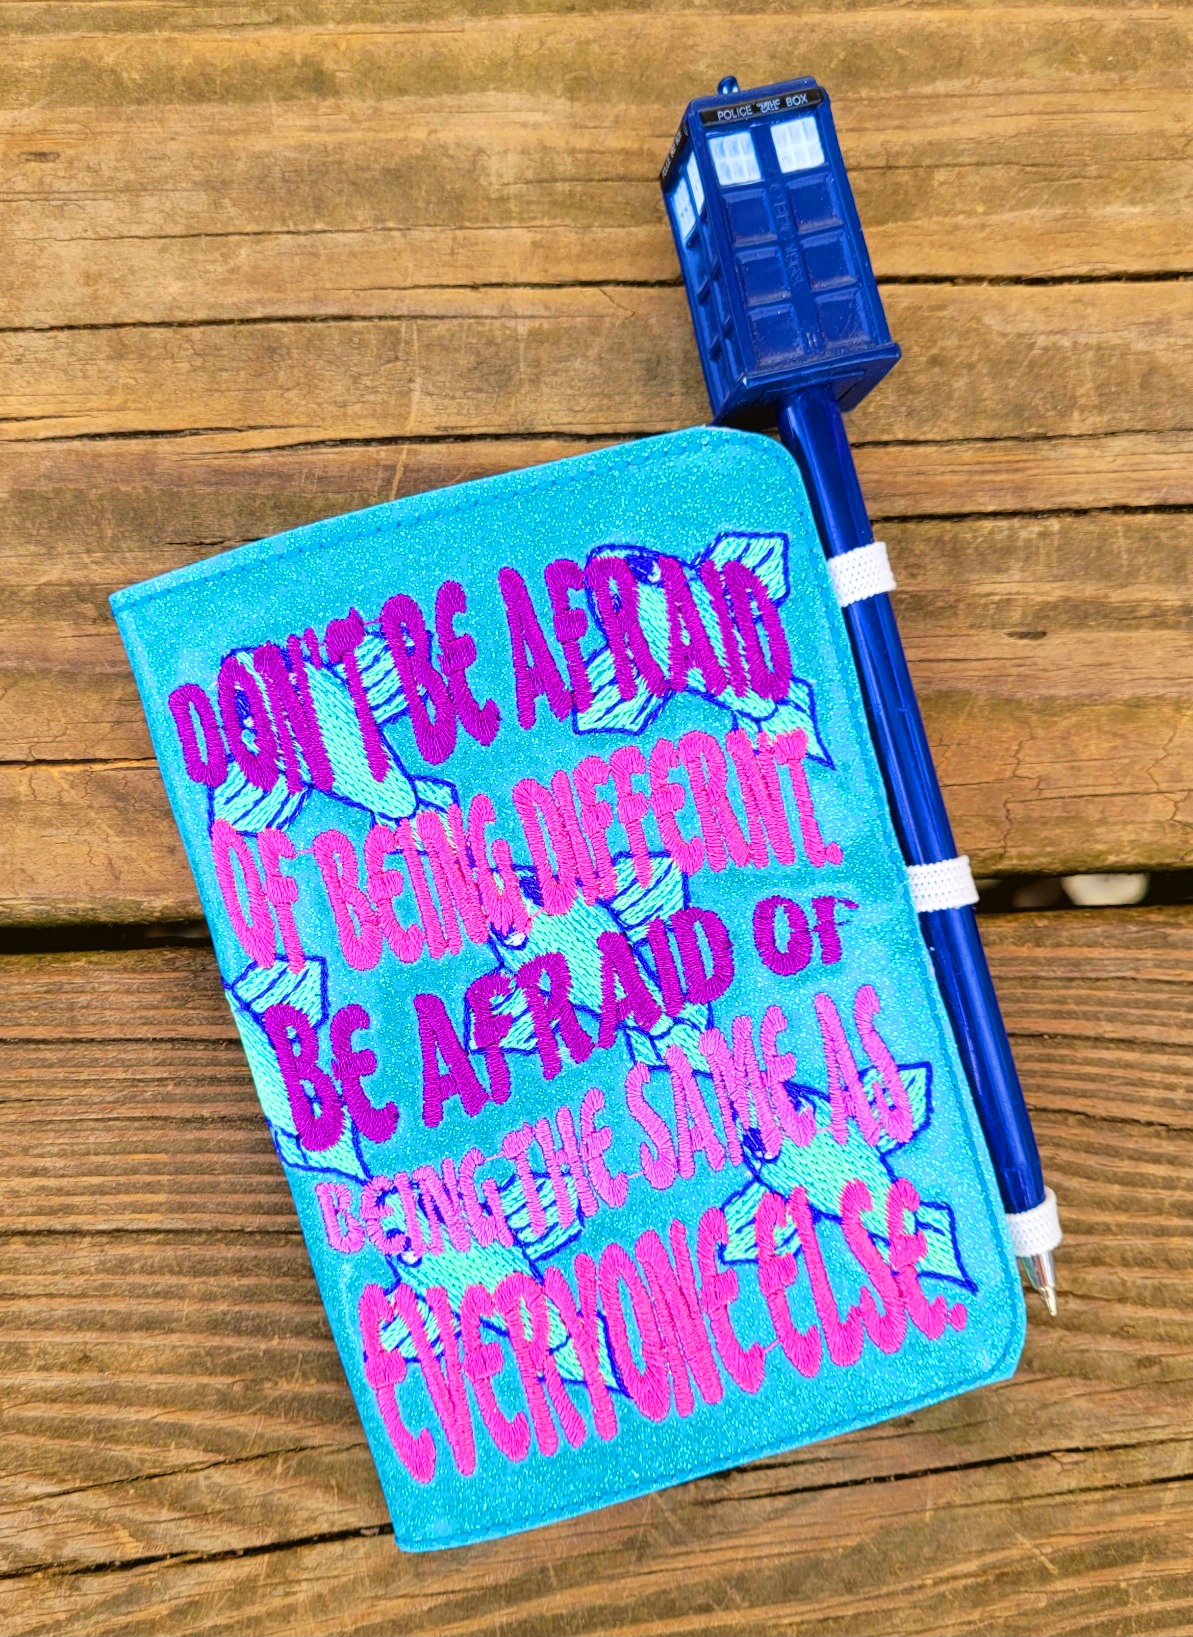 POLICE PUBLIC CALL BOX
DON'T BE AFRAID
OF BEING DIFFERNT.
BE AFRAID OF
BEING THE SAME AS
EVERYONE ELSE.